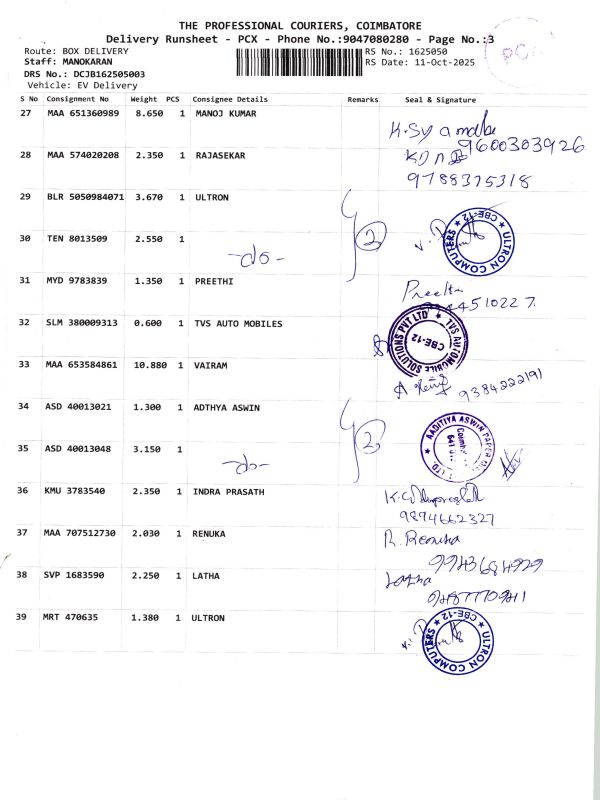 THE PROFESSIONAL COURIERS, COIMBATORE
Delivery Runsheet - PCX - Phone No.:9047080280 - Page No.:3
Route: BOX DELIVERY
RS No.: 1625050
Staff: MANOKARAN
RS Date: 11-Oct-2025
DRS No.: DCJB162505003
Vehicle: EV Delivery
S No Consignment No Weight PCS Consignee Details Remarks Seal & Signature
27 MAA 651360989 8.650 1 MANOJ KUMAR
9600303926
28 MAA 574020208 2.350 1 RAJASEKAR
9788375318
29 BLR 5050984071 3.670 1 ULTRON
2
ULTRON COMPUTERS ★ CBE-12 ★
30 TEN 8013509 2.550 1
-do-
31 MYD 9783839 1.350 1 PREETHI
Preethi
32 SLM 380009313 0.600 1 TVS AUTO MOBILES
TVS AUTOMOBILE SOLUTIONS PVT LTD ★ CBE-12
33 MAA 653584861 10.880 1 VAIRAM
9384222191
34 ASD 40013021 1.300 1 ADTHYA ASWIN
2
AADITIYA ASWIN PAPER
35 ASD 40013048 3.150 1
-do-
36 KMU 3783540 2.350 1 INDRA PRASATH
9894662327
37 MAA 707512730 2.030 1 RENUKA
R. Renuka
9943684929
38 SVP 1683590 2.250 1 LATHA
Latha
9487770941
39 MRT 470635 1.380 1 ULTRON
ULTRON COMPUTERS ★ CBE-12 ★